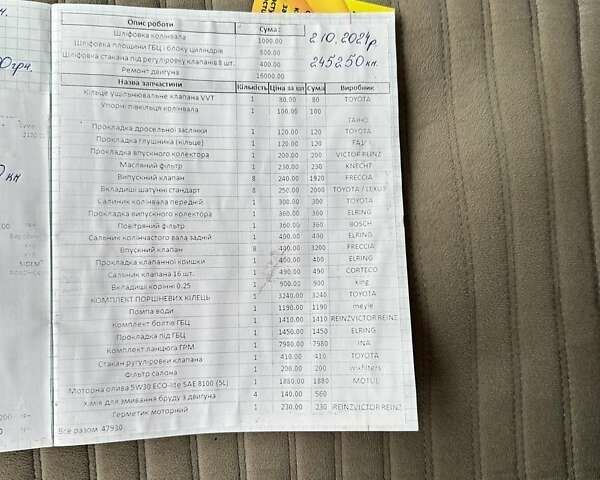 Опис роботи Сума:
Шліфовка колінвала 1000.00
Шліфовка площини ГБЦ і блоку циліндрів 800.00
Шліфовка стакана під регуліровку клапанів 8 шт. 400.00
Ремонт двигуна 16000.00
2.10.2024р
245250 км.
0 грн.
км
Назва запчастини Кількість Ціна за шт Сума Виробник
Кільце ущільнювальне клапана VVT 1 80.00 80 TOYOTA
Упорні півкільця колінвала 1 100.00 100
TAIHO
Прокладка дросельної заслінки 1 120.00 120 TOYOTA
Прокладка глушника (кільце) 1 120.00 120 FA1
Прокладка впускного колектора 1 200.00 200 VICTOR REINZ
Масляний фільтр 1 230.00 230 KNECHT
Випускний клапан 8 240.00 1920 FRECCIA
Вкладиші шатунні стандарт 8 250.00 2000 TOYOTA / LEXUS
Салиник колінвала передній 1 300.00 300 TOYOTA
Прокладка випускного колектора 1 360.00 360 ELRING
Повітряний фільтр 1 360.00 360 BOSCH
Сальник колінчастого вала задній 1 400.00 400 ELRING
Впускний клапан 8 400.00 3200 FRECCIA
Прокладка клапанної кришки 1 400.00 400 ELRING
Сальник клапана 16 шт. 1 490.00 490 CORTECO
Вкладиші корінні 0.25 1 900.00 900 king
КОМПЛЕКТ ПОРШНЕВИХ КІЛЕЦЬ 1 3240.00 3240 TOYOTA
Помпа води 1 1190.00 1190 meyle
Комплект болтів ГБЦ 1 1410.00 1410 REINZVICTOR REINZ
Прокладка під ГБЦ 1 1450.00 1450 ELRING
Комплект ланцюга ГРМ. 1 7980.00 7980 INA
Стакан ругуліровки клапана 1 410.00 410 TOYOTA
Фільтр салона 1 200.00 200 wixfilters
Моторна олива 5W30 ECO-lite SAE 8100 (5L) 1 1880.00 1880 MOTUL
Хімія для змивання бруду з двигуна 4 140.00 560
Герметик моторний 1 230.00 230 REINZVICTOR REINZ
Все разом 47930